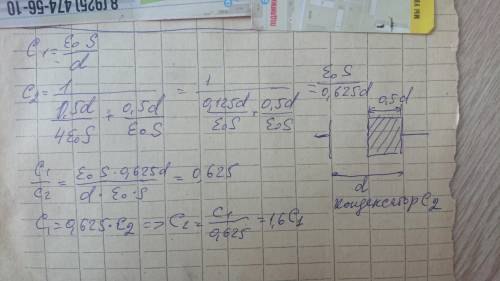 8(925)474-56-10
C₁ = ε₀S/d
C₂ = 1/(0,5d/4ε₀S + 0,5d/ε₀S) = 1/(0,125d/ε₀S + 0,5d/ε₀S) = ε₀S/0,625d
0,5d
d
Конденсатор C₂
C₁/C₂ = ε₀S·0,625d/d·ε₀·S = 0,625
C₁ = 0,625·C₂ => C₂ = C₁/0,625 = 1,6C₁